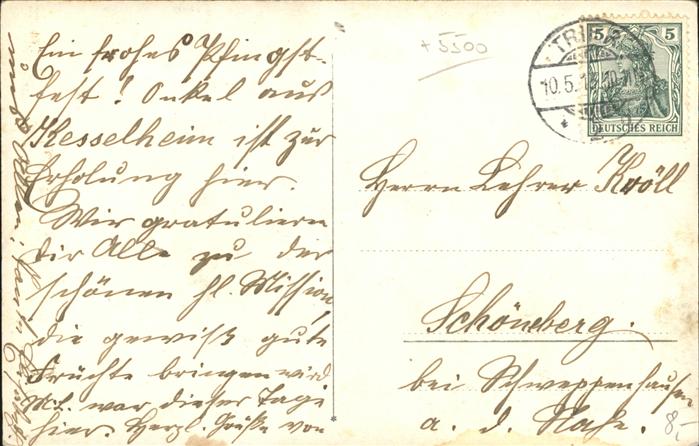 Ein frohes Pfingst-
fest! Onkel aus
Kesselheim ist zur
Erholung hier.
Wir gratulieren
dir Alle zu der
schönen hl. Mission,
die gewiß gute
Früchte bringen wird
war dieser Tage
hier. Herzl. Grüße von
+5500
TRIER
10.5.13.10-11
5 5
DEUTSCHES REICH
Herrn Lehrer Kröll
Schöneberg.
bei Schweppenhausen
a. d. Nahe.
8,-